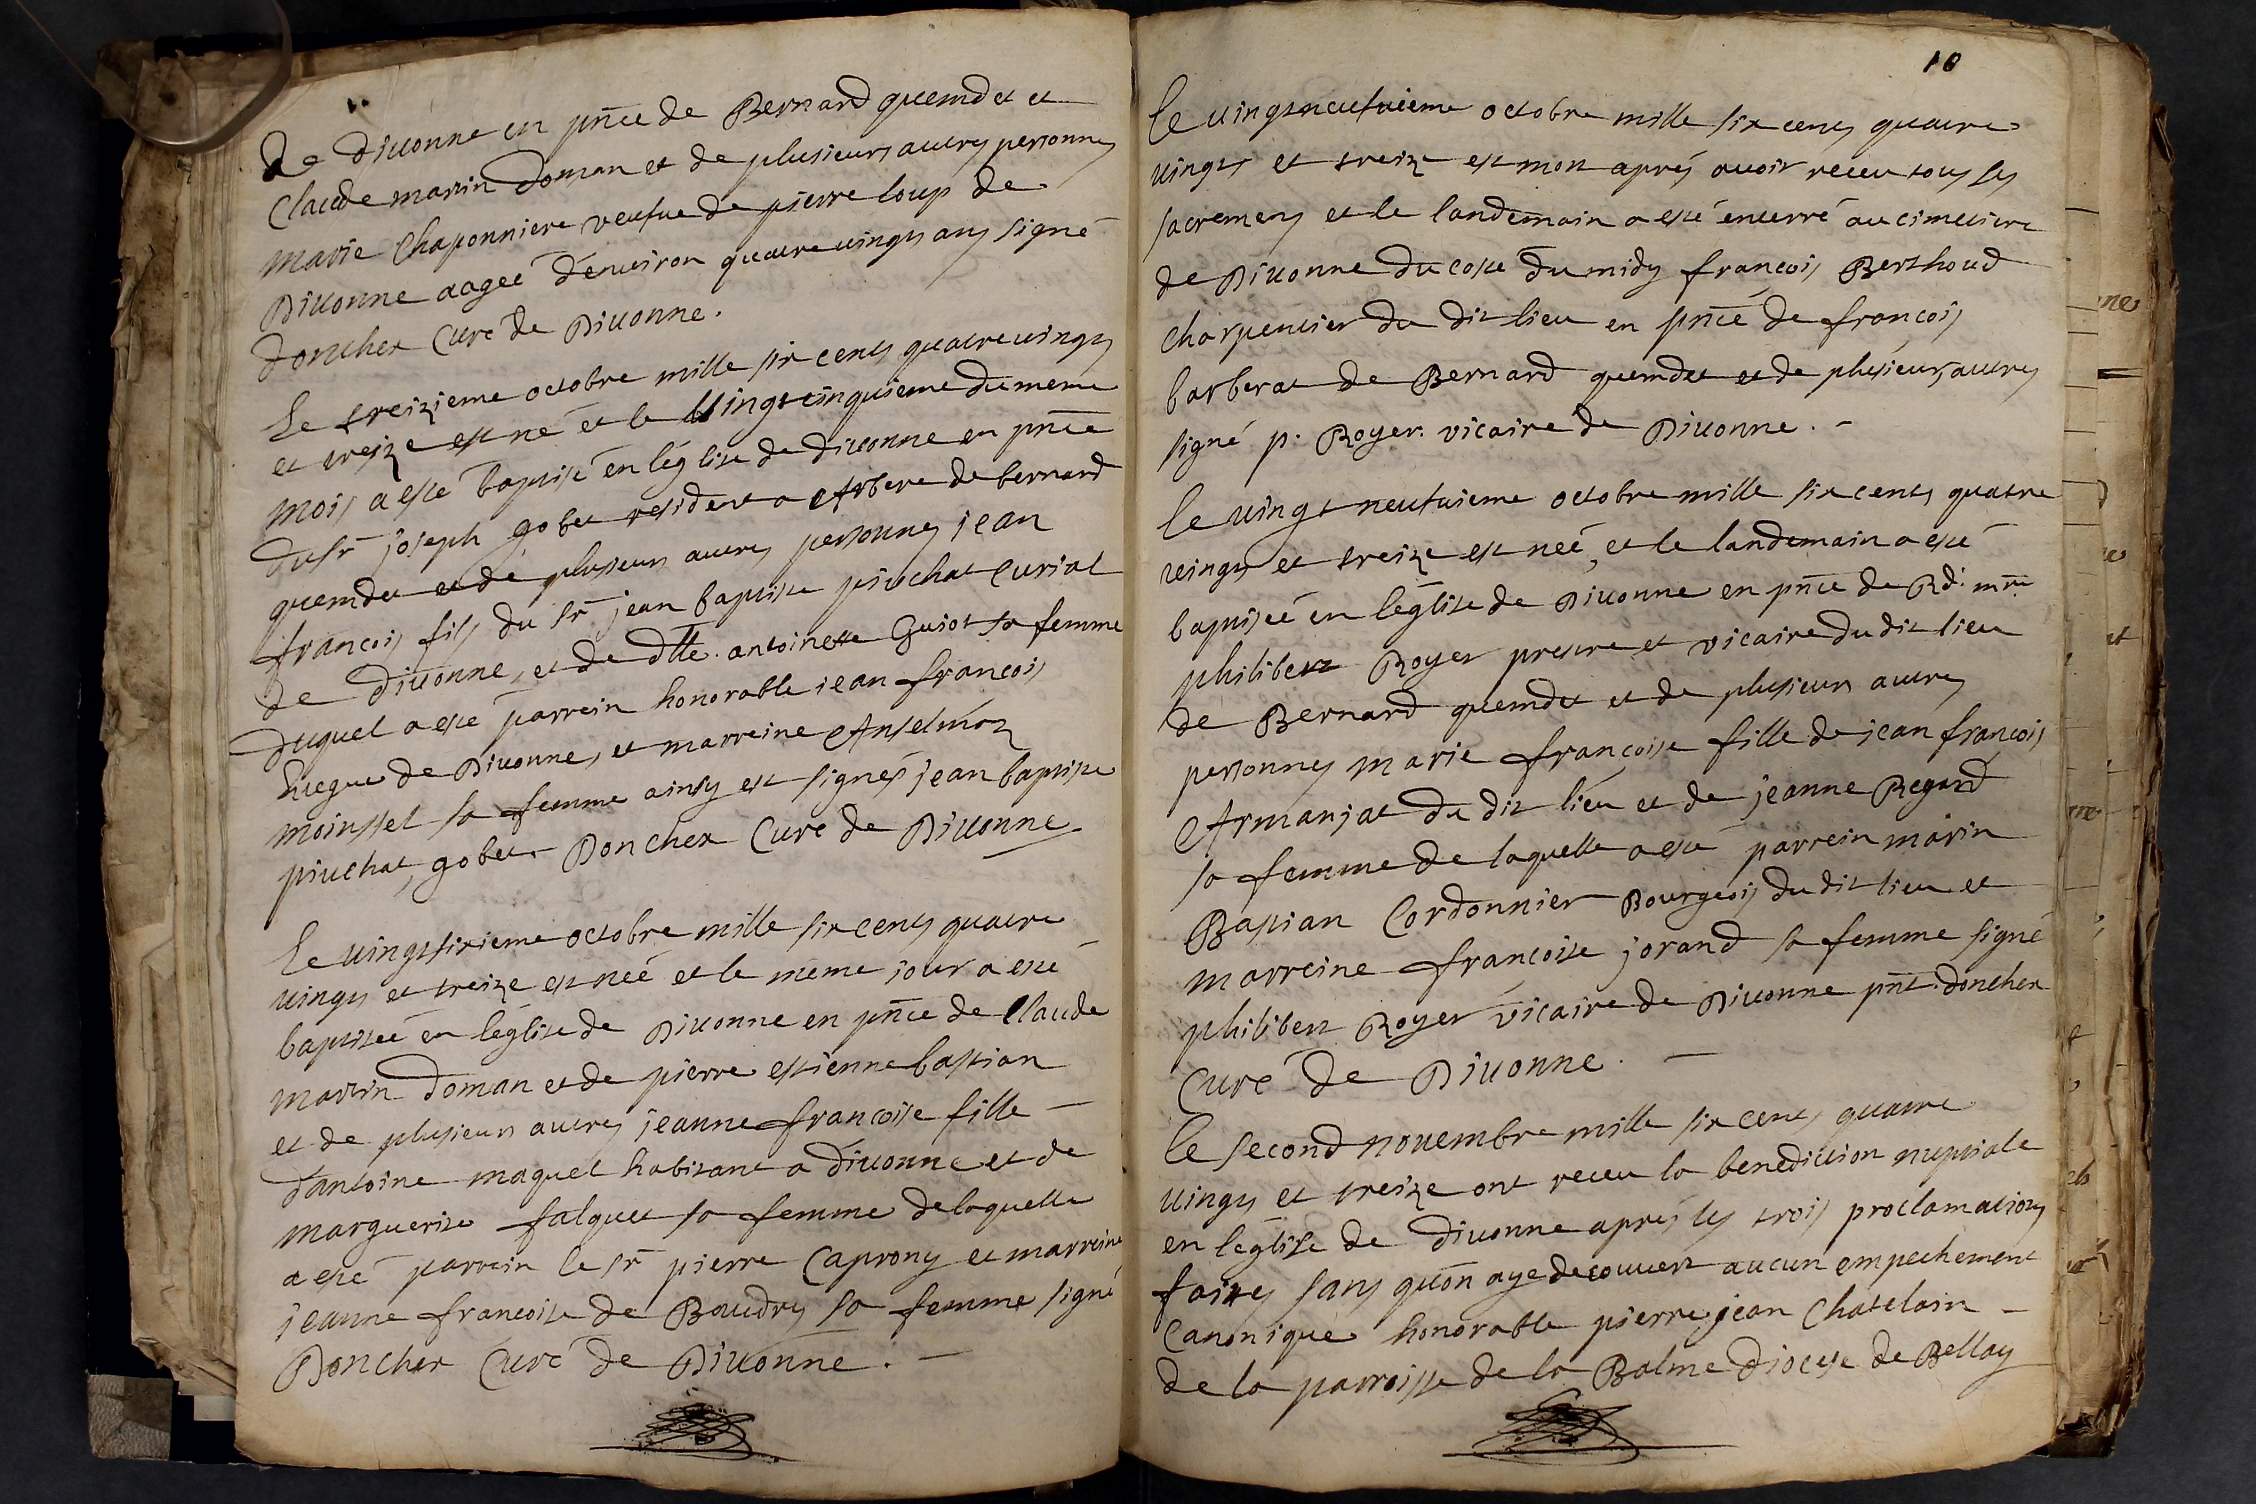 de divonne en pñce de Bernard quemdet et
Claude marin doman et de plusieurs autres personnes
marie Chaponniere veufue de pierre loup de
Diuonne aagée d'enuiron quatre uingts ans signé
doncher Curé de Diuonne.
Le treizieme octobre mille six cents quatre uingts
et treize est né et le Uingt cinquieme du meme
mois a esté baptisé en léglise de diuonne en pñce
du sr joseph gobet resident a Arbere de bernard
quemdet et de plusieurs autres personnes jean
francois fils du sr jean baptiste piuchat Curial
de diuonne, et de dlle. antoinette Guiot sa femme
duquel a esté parrein honorable jean francois
huegue de Diuonne, et marreine Anselmoz
moinssel sa femme ainsy est signés jean baptiste
piuchat, gobet. Doncher Curé de Diuonne
Le uingtsixieme octobre mille six cents quatre
uingts et treize est neé et le méme jour a esté
baptiseé en léglise de Diuonne en pñce de Claude
marin doman et de pierre estienne bastian
et de plusieurs autres jeanne francoise fille —
d'antoine maquet habitant a diuonne et de
marguerite falquet sa femme de laquelle
a esté parrein le sr pierre Caprony et marreine
jeanne francoise de Boudry sa femme signé
Doncher Curé de Diuonne. —
10
le uingtneufuieme octobre mille six cents quatre
uingts et treize est mort aprés auoir receu tous les
sacremens et le landemain a esté enterré au cimetiere
de Diuonne du coste du midy francois Berthoud
charpentier du dit lieu en pñce de francois
barberat de Bernard quemdet et de plusieurs autres
signé p. Royer. vicaire de Diuonne. -
le uingt neufuieme octobre mille six cents quatre
uingts et treize est neé, et le landemain a esté
baptiseé en léglise de Diuonne en pñce de Rd. mre
philibert Royer prestre et vicaire du dit lieu
de Bernard quemdet et de plusieurs autres
personnes marie francoise fille de jean francois
Armanjat du dit lieu et de jeanne Regard
sa femme de laquelle a esté parrein marin
Bastian Cordonnier Bourgeois du dit lieu et
marreine francoise jorand sa femme signé
philibert Royer vicaire de Diuonne pñt. doncher
Curé de Diuonne. —
le second nouembre mille six cents quatre
uingts et treize ont receu la benediction nuptiale
en léglise de diuonne aprés les trois proclamations
faites sans quon aye decouuert aucun empechement
Canonique honorable pierre jean Chatelain —
de la parroisse de la Balme diocese de Bellay